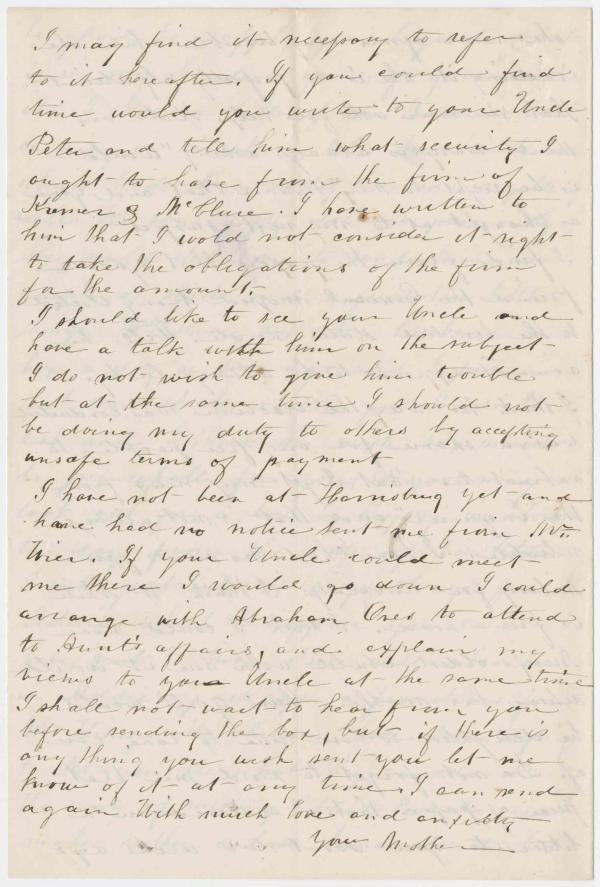 I may find it necessary to refer
to it hereafter. If you could find
time would you write to your Uncle
Peter and tell him what security I
ought to have from the firm of
& McClure. I have written to
him that I wold not consider it right
to take the obligations of the firm
for the amount.
I should like to see your Uncle and
have a talk with him on the subject
I do not wish to give him trouble
but at the same time I should not
be doing my duty to others by accepting
unsafe terms of payment
I have not been at Harrisburg yet and
have had no notice sent me from Wm.
If your Uncle could meet
me there I would go down I could
arrange with Abraham to attend
to Aunt's affairs, and explain my
views to your Uncle at the same time
I shall not wait to hear from you
before sending the box, but if there is
any thing you wish sent you let me
know of it at any time. I can send
again With much love and anxiety
Your Mother